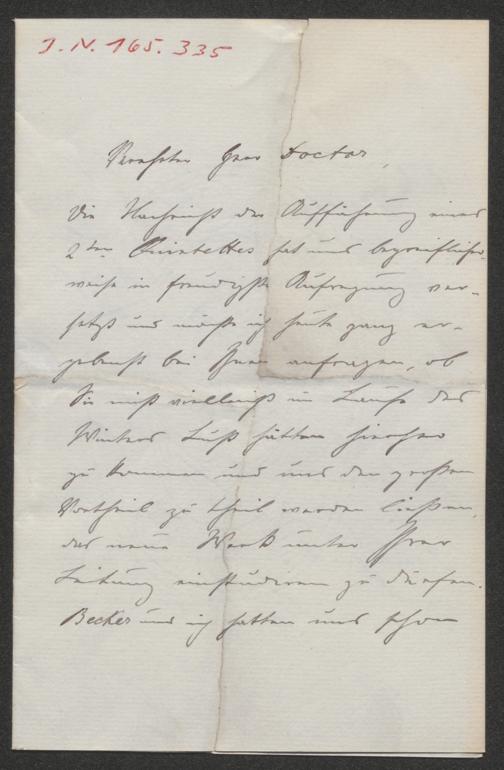 J. N. 165.335
Verehrter Herr Doctor,
Die Nachricht der Aufführung eines
2ten Quintettes hat uns begreiflicher-
weise in freudigste Aufregung ver-
setzt und möchte ich heute ganz er-
gebenst bei Ihnen anfragen, ob
Sie nicht vielleicht im Laufe des
Winters Lust hätten hierher
zu kommen und uns den großen
Vortheil zu theil werden ließen,
das neue Werk unter Ihrer
Leitung einstudieren zu dürfen.
Becker und ich hatten uns schon